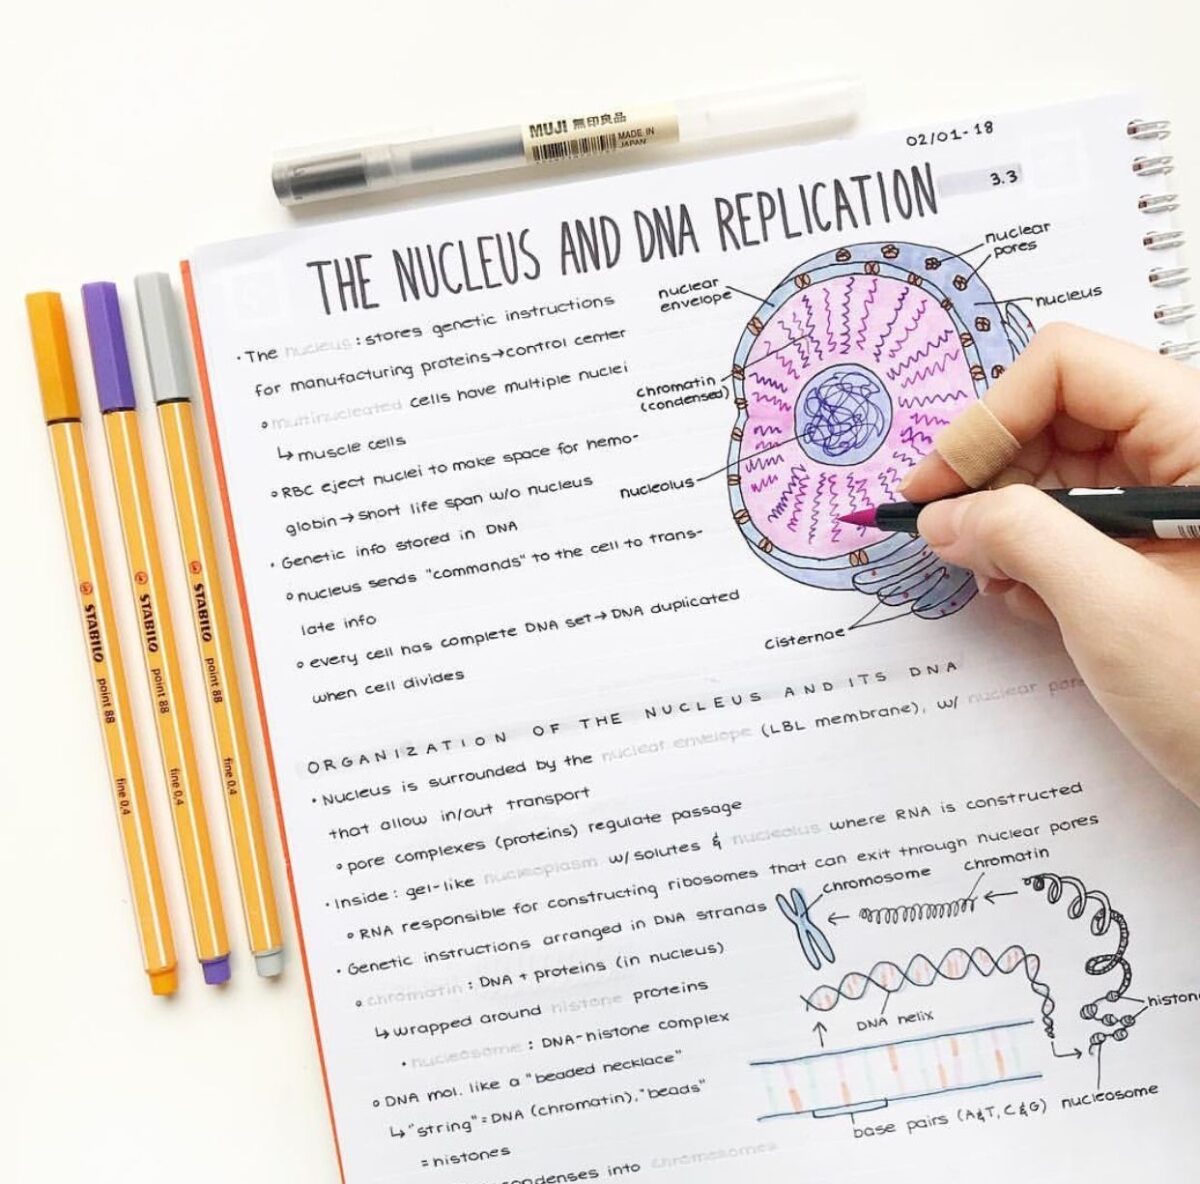 MUJI 無印良品
MADE IN
JAPAN
02/01-18
3.3
THE NUCLEUS AND DNA REPLICATION
• The nucleus: stores genetic instructions
for manufacturing proteins→control center
° multinucleated cells have multiple nuclei
↳ muscle cells
° RBC eject nuclei to make space for hemo-
globin → short life span w/o nucleus
• Genetic info stored in DNA
° nucleus sends "commands" to the cell to trans-
late info
° every cell has complete DNA set→ DNA duplicated
when cell divides
nuclear
envelope
nuclear
pores
nucleus
chromatin
(condensed)
nucleolus
cisternae
ORGANIZATION OF THE NUCLEUS AND ITS DNA
• Nucleus is surrounded by the nuclear envelope (LBL membrane), w/ nuclear
that allow in/out transport
° pore complexes (proteins) regulate passage
• Inside: gel-like nucleoplasm w/ solutes & nucleolus where RNA is constructed
° RNA responsible for constructing ribosomes that can exit through nuclear pores
• Genetic instructions arranged in DNA strands
° chromatin: DNA + proteins (in nucleus)
↳ wrapped around histone proteins
• nucleosome: DNA-histone complex
° DNA mol. like a "beaded necklace"
↳ "string" = DNA (chromatin), "beads"
= histones
into chromosomes
chromosome
chromatin
DNA helix
histon
base pairs (A&T, C&G)
nucleosome
STABILO point 88 fine 0.4
STABILO point 88 fine 0.4
STABILO point 88 fine 0.4